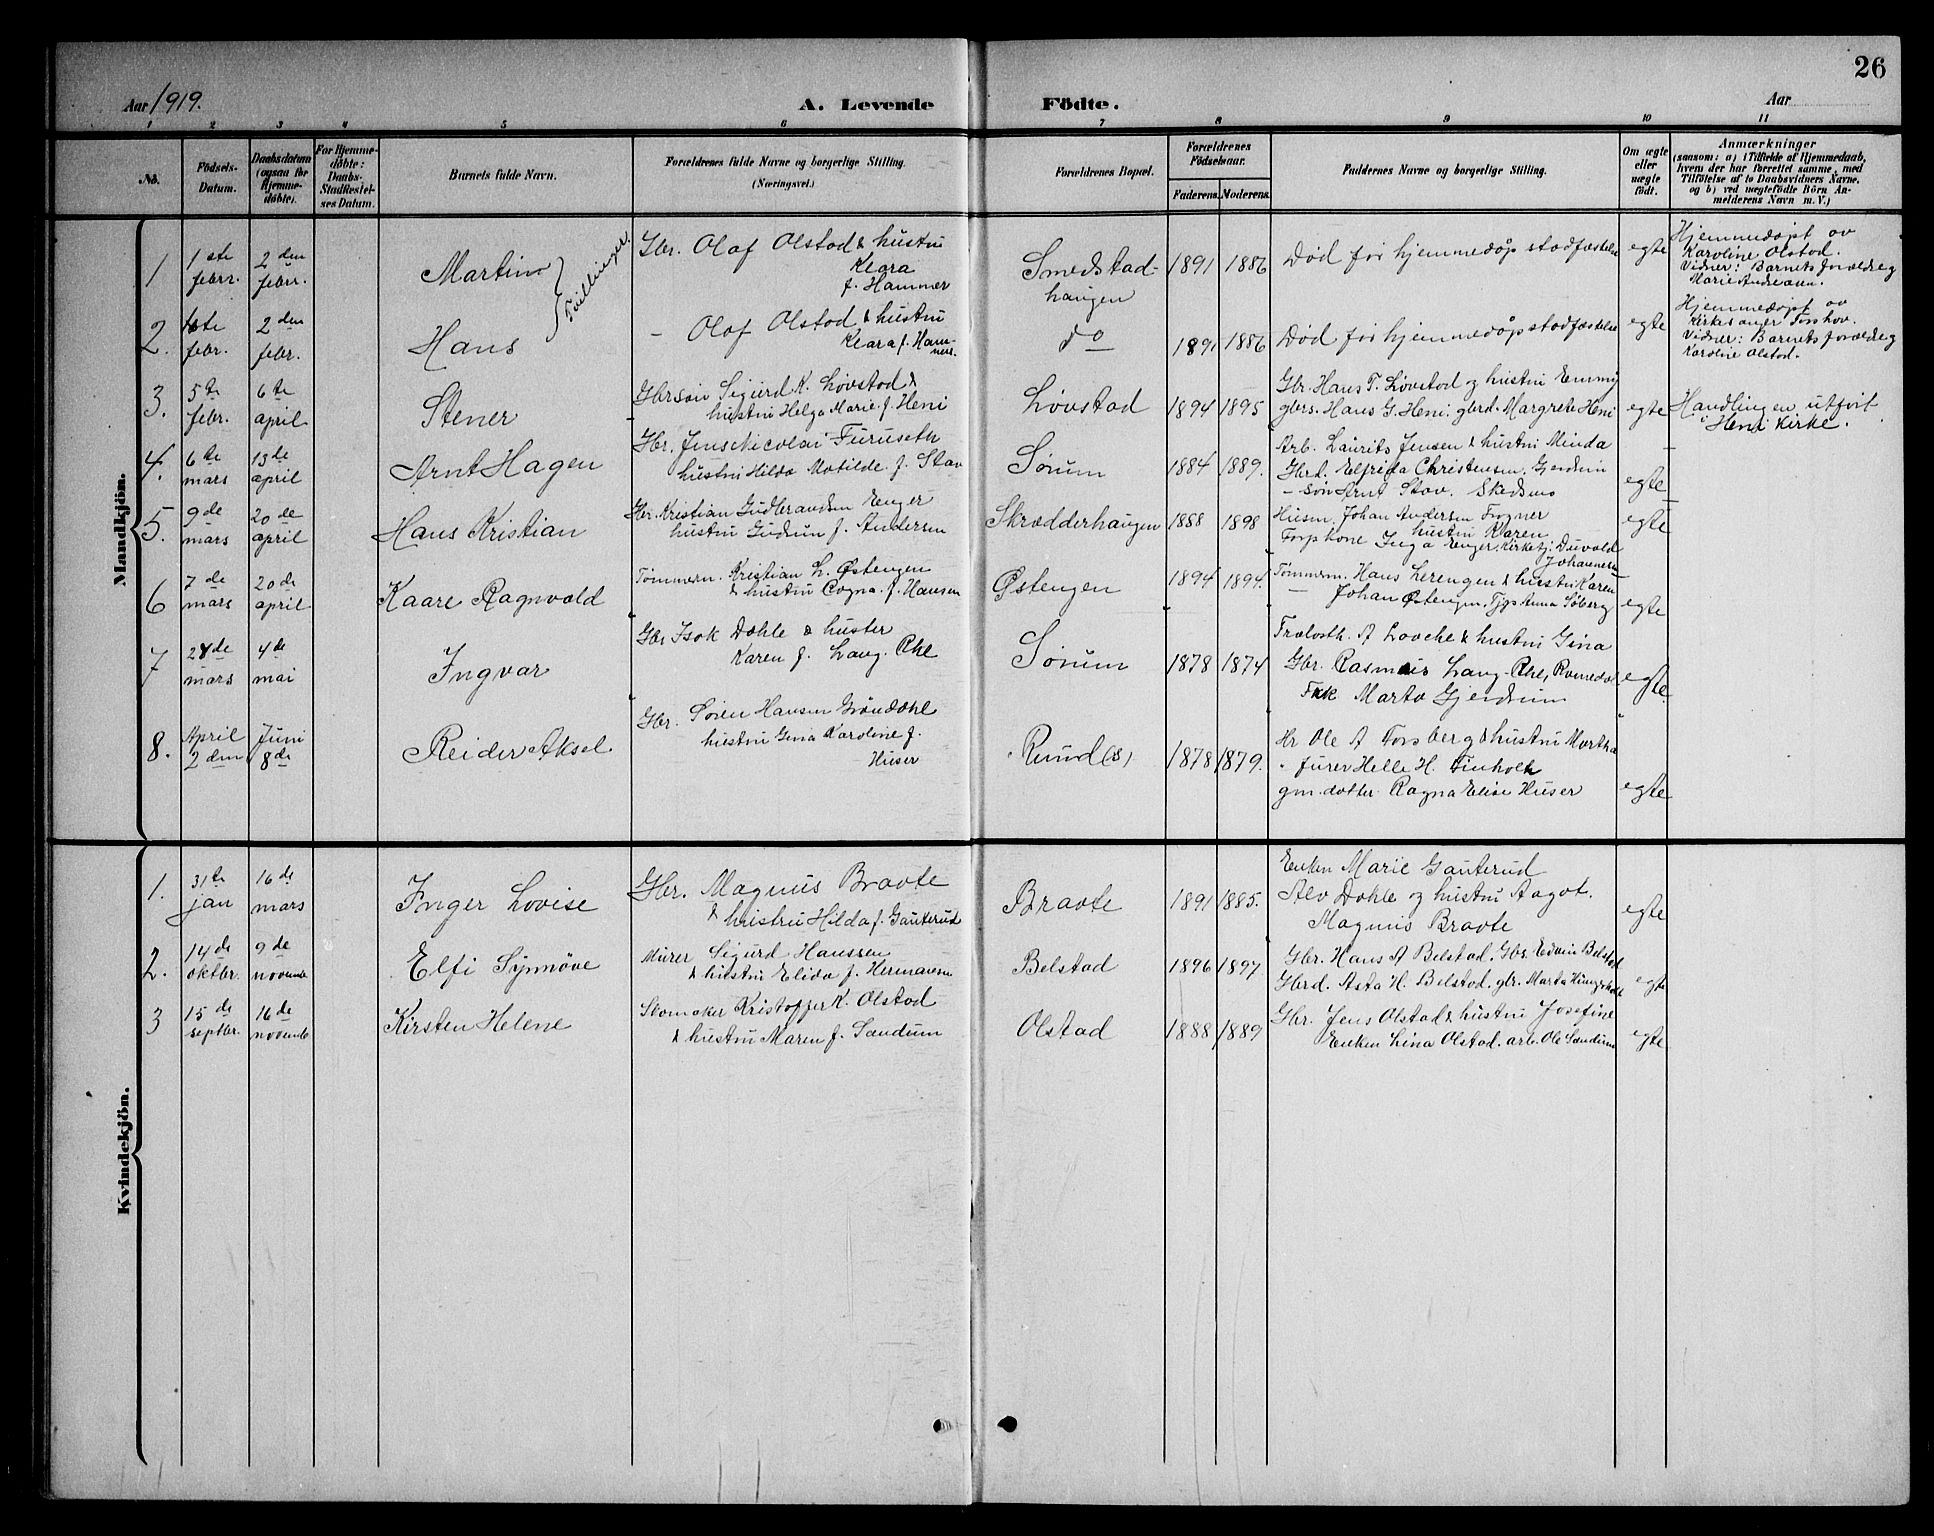 26
Aar 1919.
A. Levende Födte.
Aar
1 2 3 4 5 6 7 8 9 10 11
No.
Födsels-Datum.
Daabsdatum (ogsaa for Hjemme-döbte).
For Hjemme-döbte: Daabs-Stadfæstel-ses Datum.
Barnets fulde Navn.
Forældrenes fulde Navne og borgerlige Stilling.
(Næringsvei.)
Forældrenes Bopæl.
Forældrenes Födselsaar.
Faderens. Moderens.
Faddernes Navne og borgerlige Stilling.
Om ægte eller uægte födt.
Anmærkninger
(saasom: a) i Tilfælde af Hjemmedaab,
hvem der har forrettet samme, med
Tilföielse af to Daabsvidners Navne,
og b) ved uægtefödte Börn An-
melderens Navn m. V.)
Mandkjön.
1 1ste febr. 2den febr. Martin
Tvillinger
Gbr. Olaf Olstad & hustru
Klara
f. Hammer
Smedstad-
haugen
1891 1886 Død før hjemmedåp stadfæstelse egte
Hjemmedøpt av
Karoline Olstad.
Vidner: Barnets forældre og
Marie Andreassen.
2. 1ste febr. 2den febr. Hans
- Olaf Olstad & hustru
Klara f. Ham-
mer.
do 1891 1886 Død før hjemmedåp stadfæstelse egte
Hjemmedøpt av
Kirkesanger Forshov.
Vidner: Barnets forældre og
Karoline Olstad.
3. 5te febr. 6te april Stener
Gbr.søn Sigurd K. Løvstad &
hustru Helga Marie f. Heni
Løvstad 1894 1895
Gbr. Hans T. Løvstad og hustru Emmy
gbrs. Hans G. Heni. gbrd. Margrete Heni
egte
Handlingen utført
i Heni kirke.
4. 6te mars 13de april Arnt Hagen
Gbr. Jens Nicolai Furuseth
hustru Hilda Matilde f. Stav
Sørum 1884 1889.
Arb. Laurits Jensen & hustru Minda
Gbrd. Elfrida Christensen, Gjerdrum
- søn Arnt Stav. Skedsmo
egte
5. 9de mars 20de april Hans Kristian
Gbr. Kristian Gudbrandsen Enger
hustru Gudrun f. Andersen
Skrædderhaugen 1888 1898
Husm. Johan Andersen Frogner
hustru Karen
Inga Enger. Kirketj. Duvald
Johannesen
egte
6 7de mars 20de april Kaare Ragnvald
Tømmerm. Kristian L. Østengen
& hustru Cogna. f. Hansen
Østengen 1894 1894
Tømmerm. Hans Lerengen & hustru Karen
- Johan Østengen. Tjgp Anna Søberg
egte
7 28de mars 4de mai Ingvar
Gbr. Isak Dahle & huster
Karen f. Laug. Rhe
Sørum 1878 1874
Trælasth. A Laache & hustru Gina
Gbr. Rasmus Laug-Rhe, Romedal
Frk Marta Gjerdrum
egte
8. April 2den Juni 8de Reider Aksel
Gbr. Søren Hansen Grøndahl
hustru Gina Karoline f.
Huser
Rund(s) 1878 1879.
Hr Ole A Forsberg & hustru Martha
furer Helle H. Tinholt
gm. datter. Ragna Elise Huser
egte
Kvindekjön.
1. 31te jan 16de mars Inger Lovise
Gbr. Magnus Braate
& hustru Hilda f. Gauterud
Braate 1891 1885.
Enken Marie Gauterud
Alv Dahle og hustru Aagot.
Magnus Braate
egte
2. 14de oktbr. 9de novembr Elfi Synnöve
Murer Sigurd Hanssen
& hustru Elida f. Hermansen
Belstad 1896 1897
Gbr. Hans A Belstad. Gbs. Edvin Belstad
Gbrd. Asta H. Belstad. gbr. Marta
egte
3 15de septbr. 16de novembr Kirsten Helene
Skomaker Kristoffer K. Olstad
& hustru Maren f. Sandum
Olstad 1888 1889
Gbr. Jens Olstad & hustru Josefine
Enken Lina Olstad. arb. Ole Sandum
egte